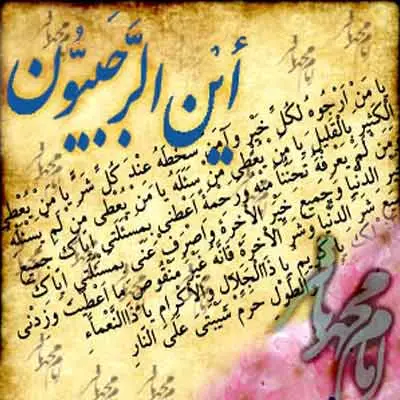 أَيْنَ الرَّجَبِيُّونَ
يا مَنْ أَرْجُوهُ لِكُلِّ خَيْرٍ وَآمَنُ سَخَطَهُ عِنْدَ كُلِّ شَرٍّ يا مَنْ يُعْطِى
الْكَثِيرَ بِالْقَلِيلِ يا مَنْ يُعْطِى مَنْ سَئَلَهُ يا مَنْ يُعْطِى مَنْ لَمْ يَسْئَلْهُ
وَمَنْ لَمْ يَعْرِفْهُ تَحَنُّناً مِنْهُ وَرَحْمَةً أَعْطِنِى بِمَسْئَلَتِى إِيَّاكَ جَمِيعَ
خَيْرِ الدُّنْيا وَجَمِيعَ خَيْرِ الْآخِرَةِ وَاصْرِفْ عَنِّى بِمَسْئَلَتِى إِيَّاكَ
شَرِّ الدُّنْيا وَشَرِّ الْآخِرَةِ فَإِنَّهُ غَيْرُ مَنْقُوصٍ ما أَعْطَيْتَ وَزِدْنِى
يا كَرِيمُ يا ذَا الْجَلالِ وَالْإِكْرامِ يا ذَا النَّعْماءِ
الطَّوْلِ حَرِّمْ شَيْبَتِى عَلَى النَّارِ
امام محمد باقر